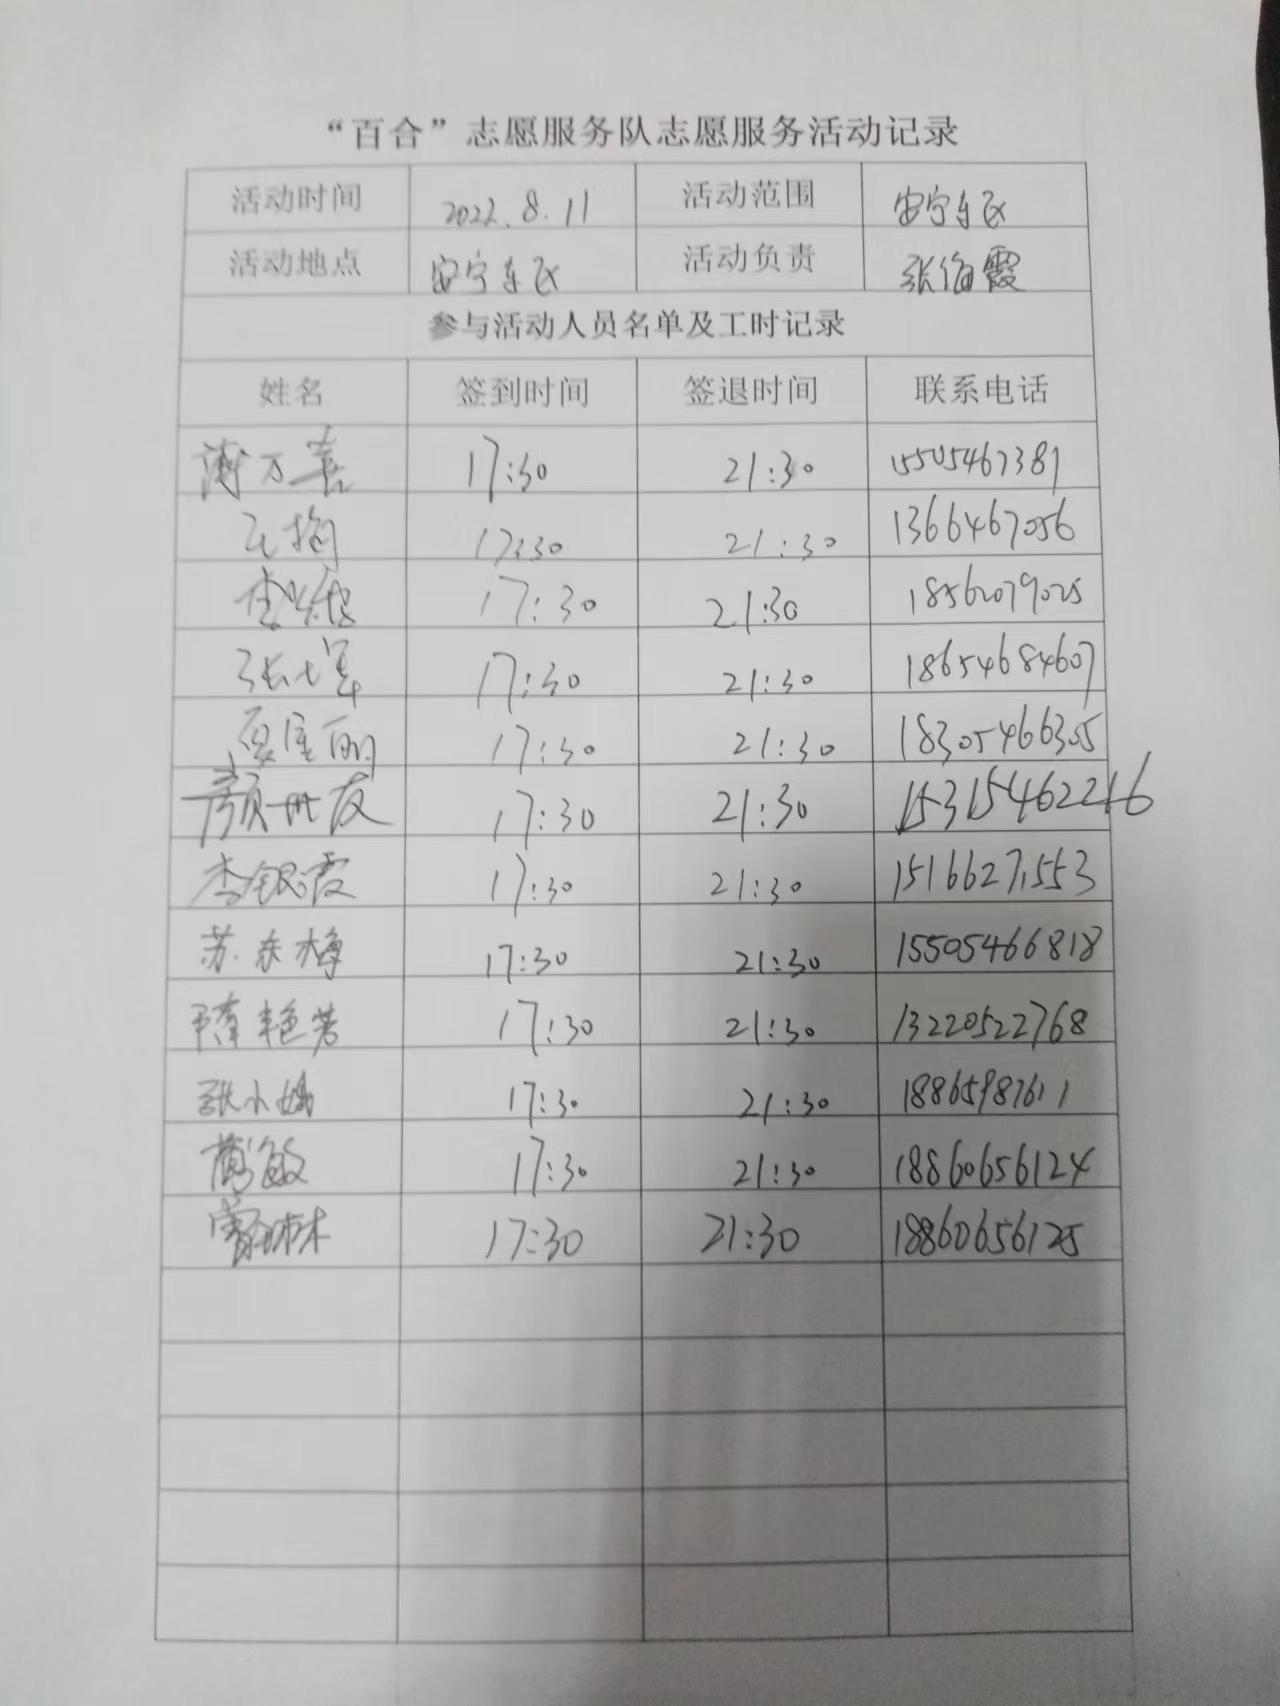 “百合”志愿服务队志愿服务活动记录
活动时间 2022.8.11 活动范围 安宁东区
活动地点 安宁东区 活动负责 张海霞
参与活动人员名单及工时记录
姓名 签到时间 签退时间 联系电话
17:30 21:30 15505467381
17:30 21:30
17:30 21:30 18562079025
17:30 21:30 18654684607
17:30 21:30 18305466305
颜世友 17:30 21:30 15315462216
李银霞 17:30 21:30 15166271553
苏东梅 17:30 21:30 15505466818
隋艳芳 17:30 21:30 13220522768
张小娥 17:30 21:30 18865987611
敏 17:30 21:30 18860656124
17:30 21:30 18860656125